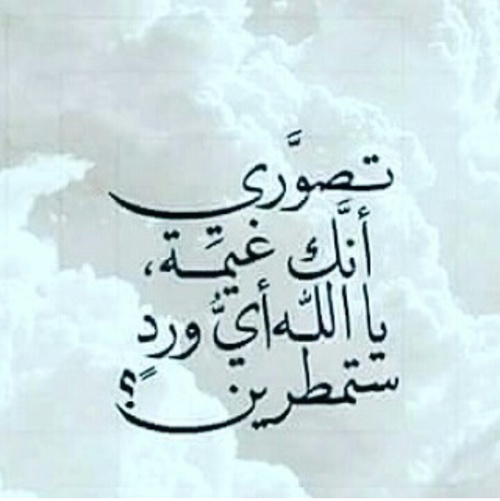 تصوَّري
أنَّك غيمَة،
يا الله أيُّ وردٍ
ستمطرين؟